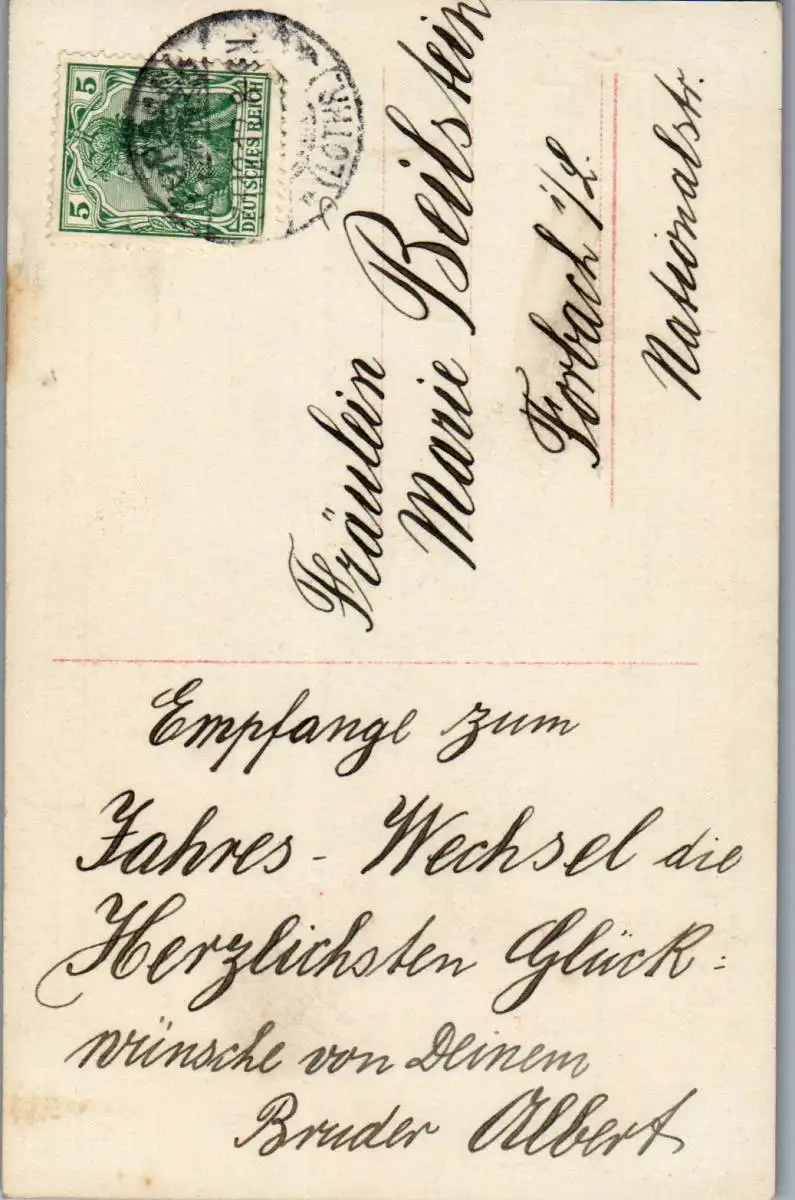 5
5
DEUTSCHES REICH
(LOTHR.)
Fräulein
Marie Beilstein
Forbach i/L.
Nationalstr.
Empfange zum
Jahres - Wechsel die
Herzlichsten Glück=
wünsche von Deinem
Bruder Albert